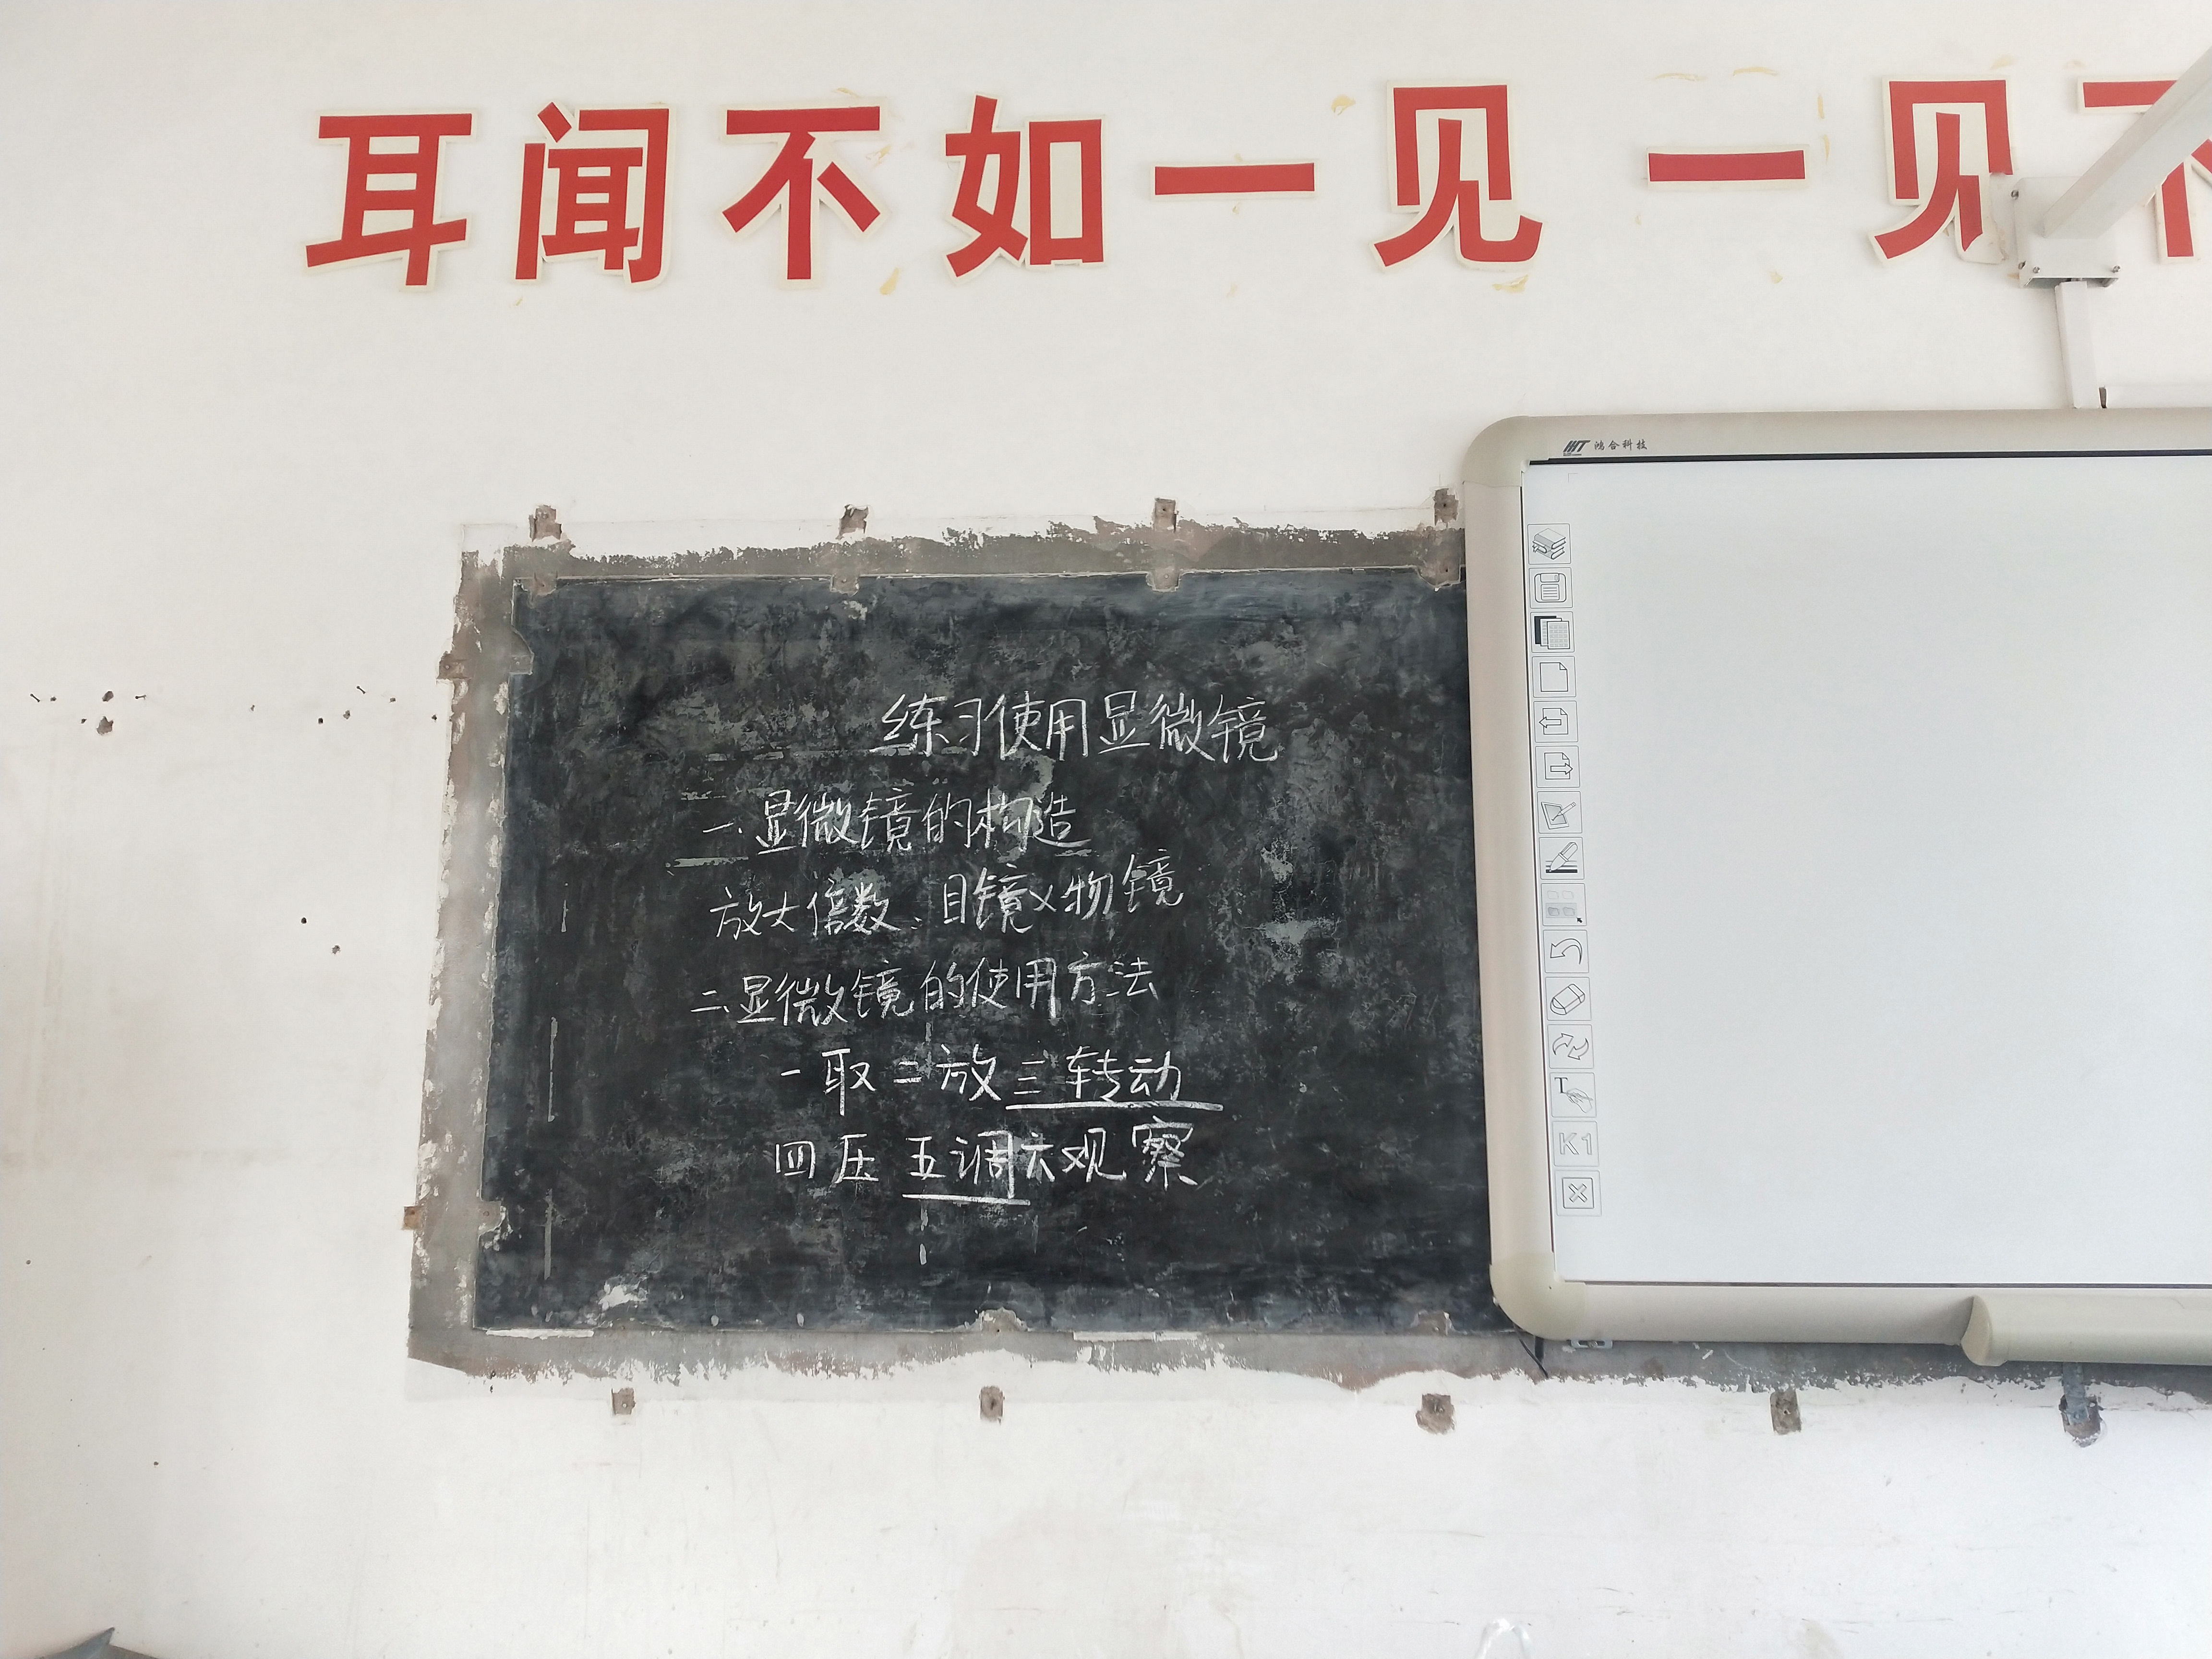 耳闻不如一见 一见不
鸿合科技
练习使用显微镜
一.显微镜的构造
放大倍数:目镜×物镜
二、显微镜的使用方法
一取二放三转动
四压五调六观察
T
K1